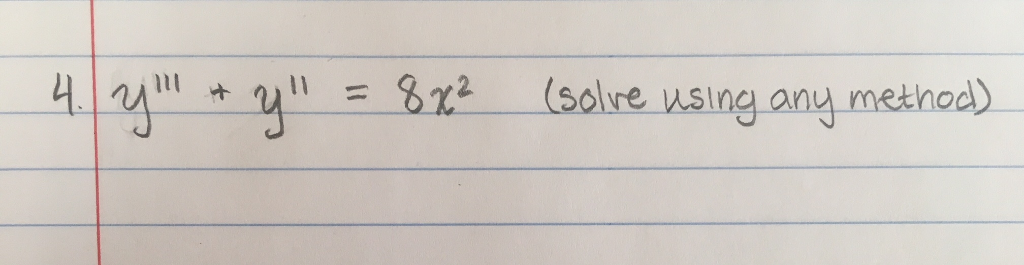 4. y''' + y'' = 8x² (solve using any method)